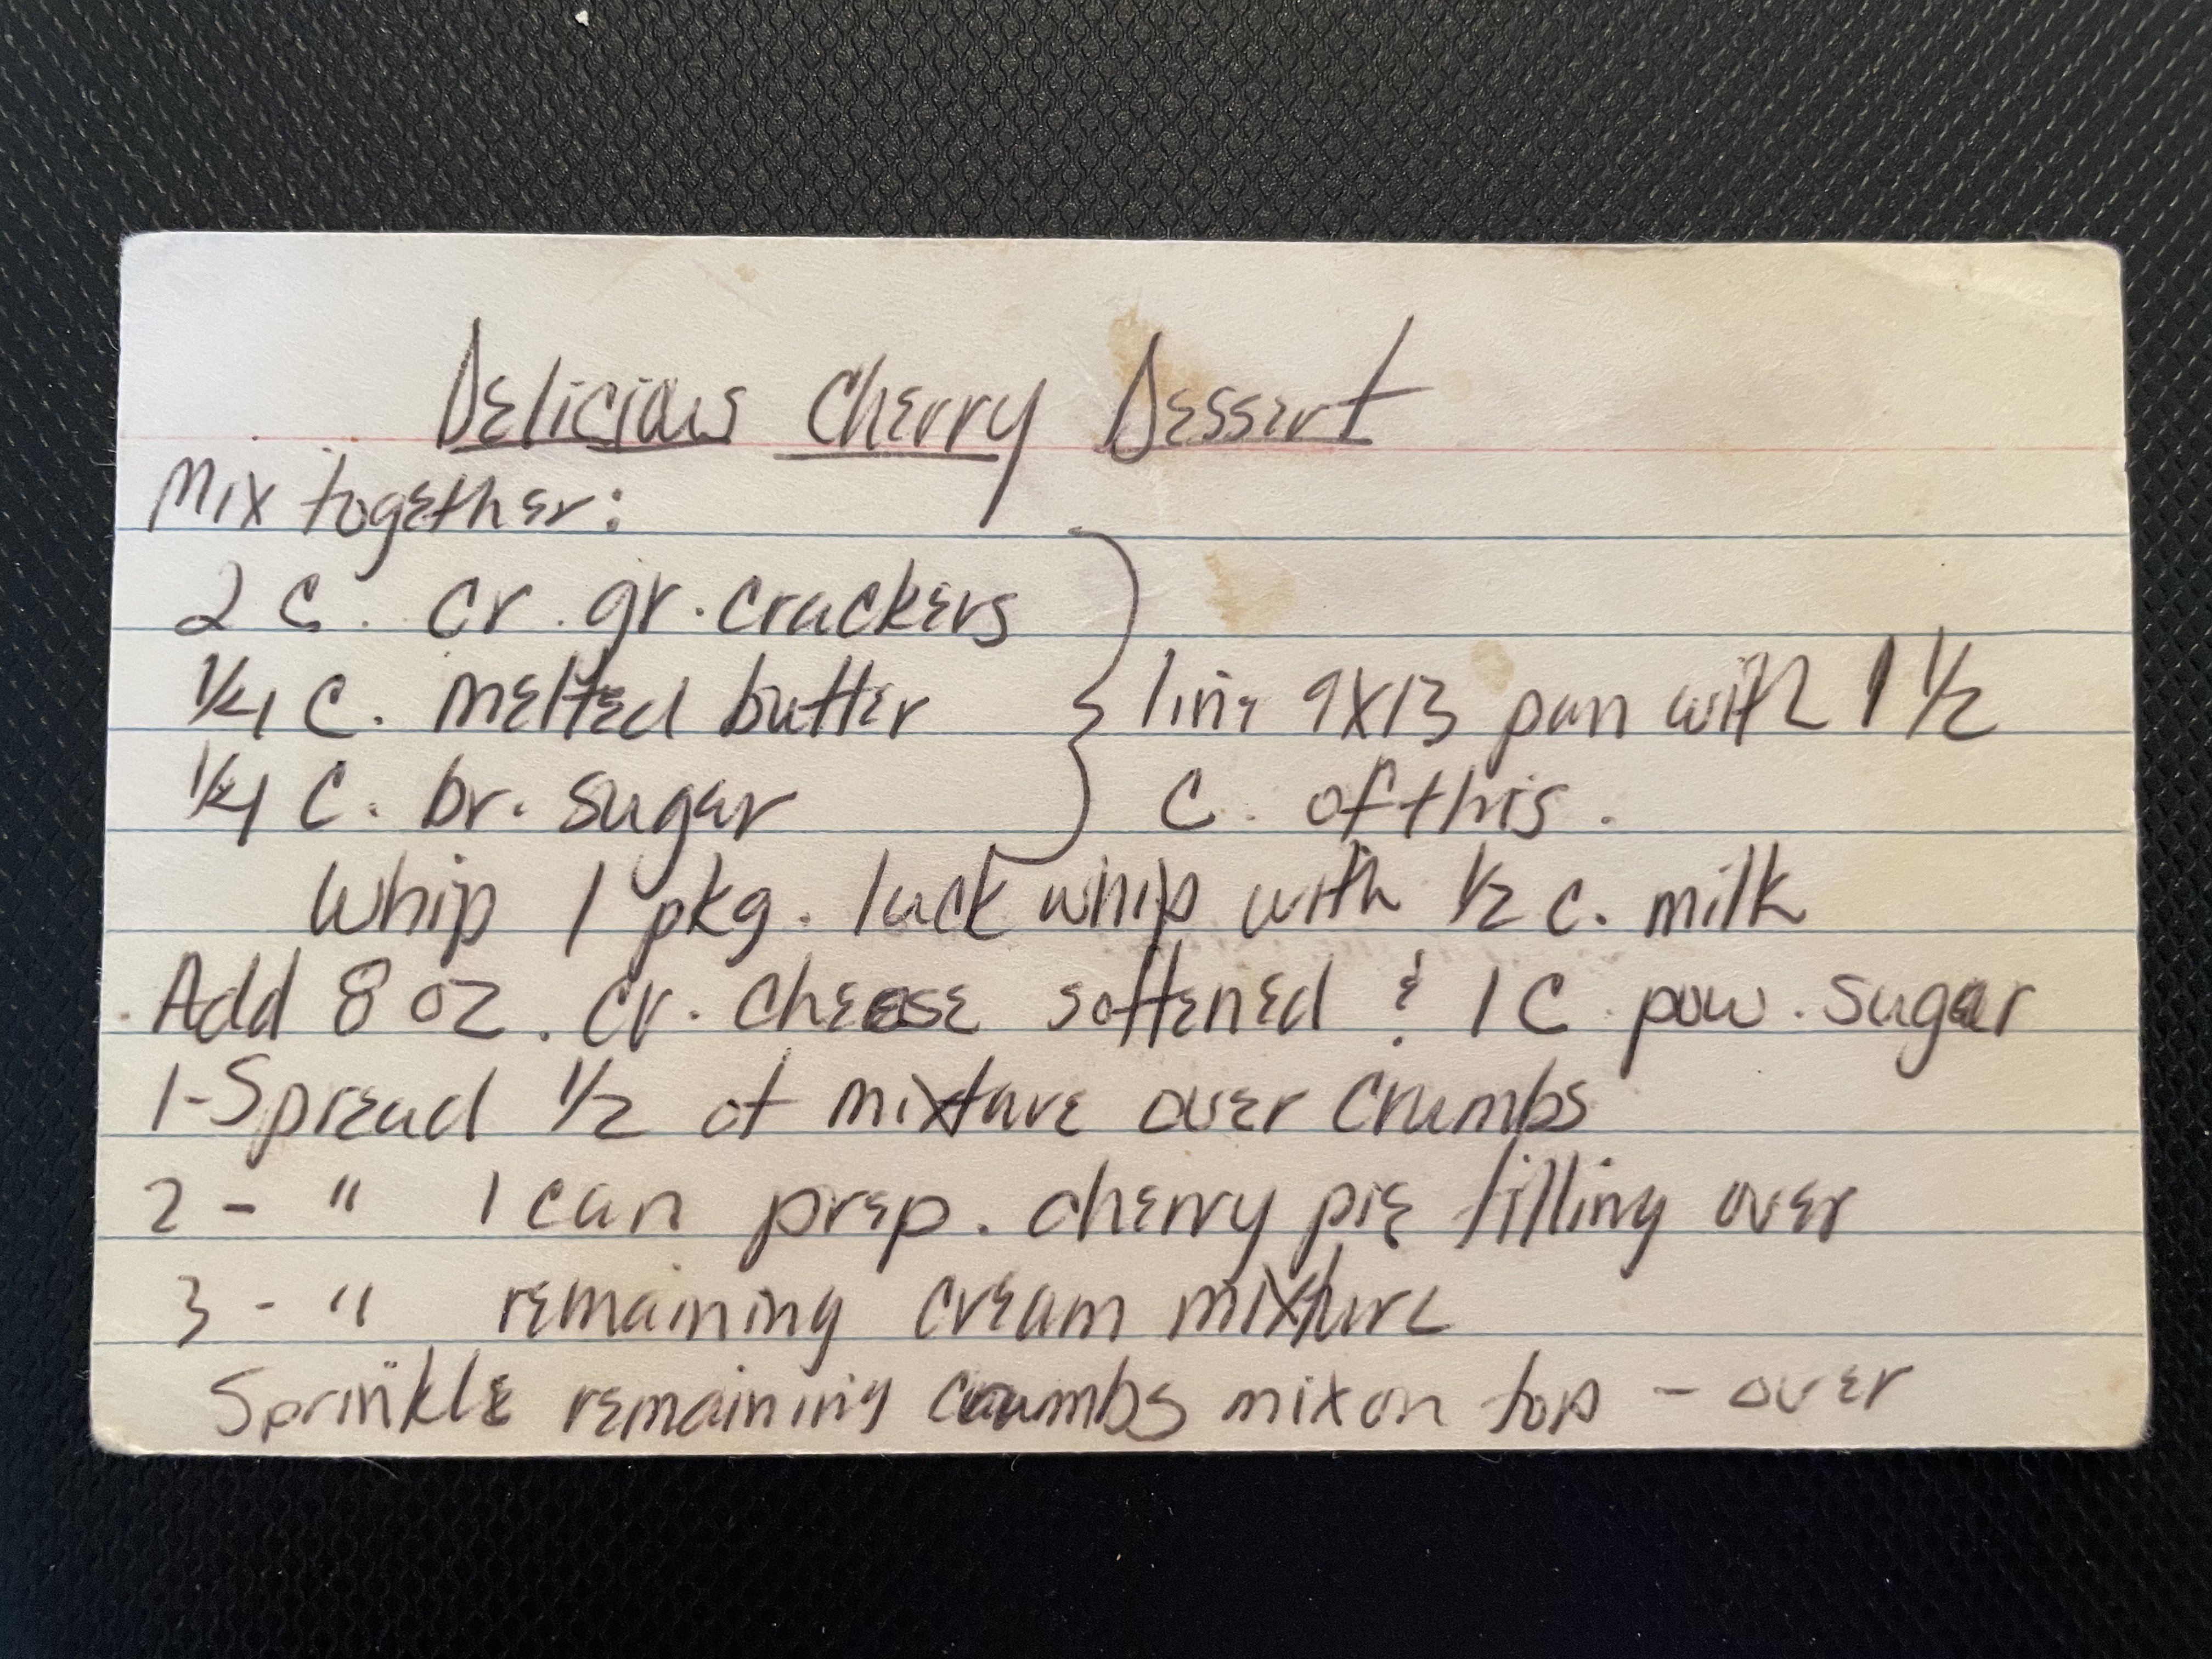 Delicious Cherry Dessert
Mix together:
2 c. cr. gr. crackers
1/4 c. melted butter
1/4 c. br. sugar
line 9x13 pan with 1 1/2
c. of this.
Whip 1 pkg. luck whip with 1/2 c. milk
Add 8 oz. cr. cheese softened & 1 c pow. sugar
1-Spread 1/2 of mixture over crumbs
2 - " 1 can prep. cherry pie filling over
3 - " remaining cream mixture
Sprinkle remaining crumbs mix on top - over